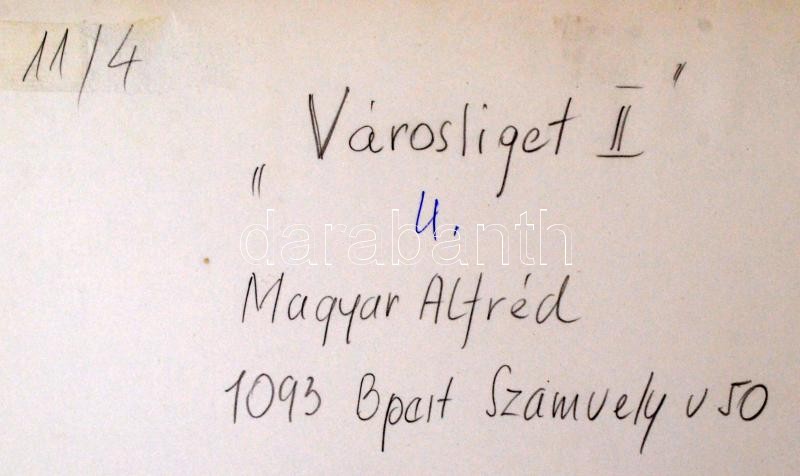 11/4
„Városliget II"
4.
darabanth
Magyar Alfréd
1093 Bpest Szamuely u 50